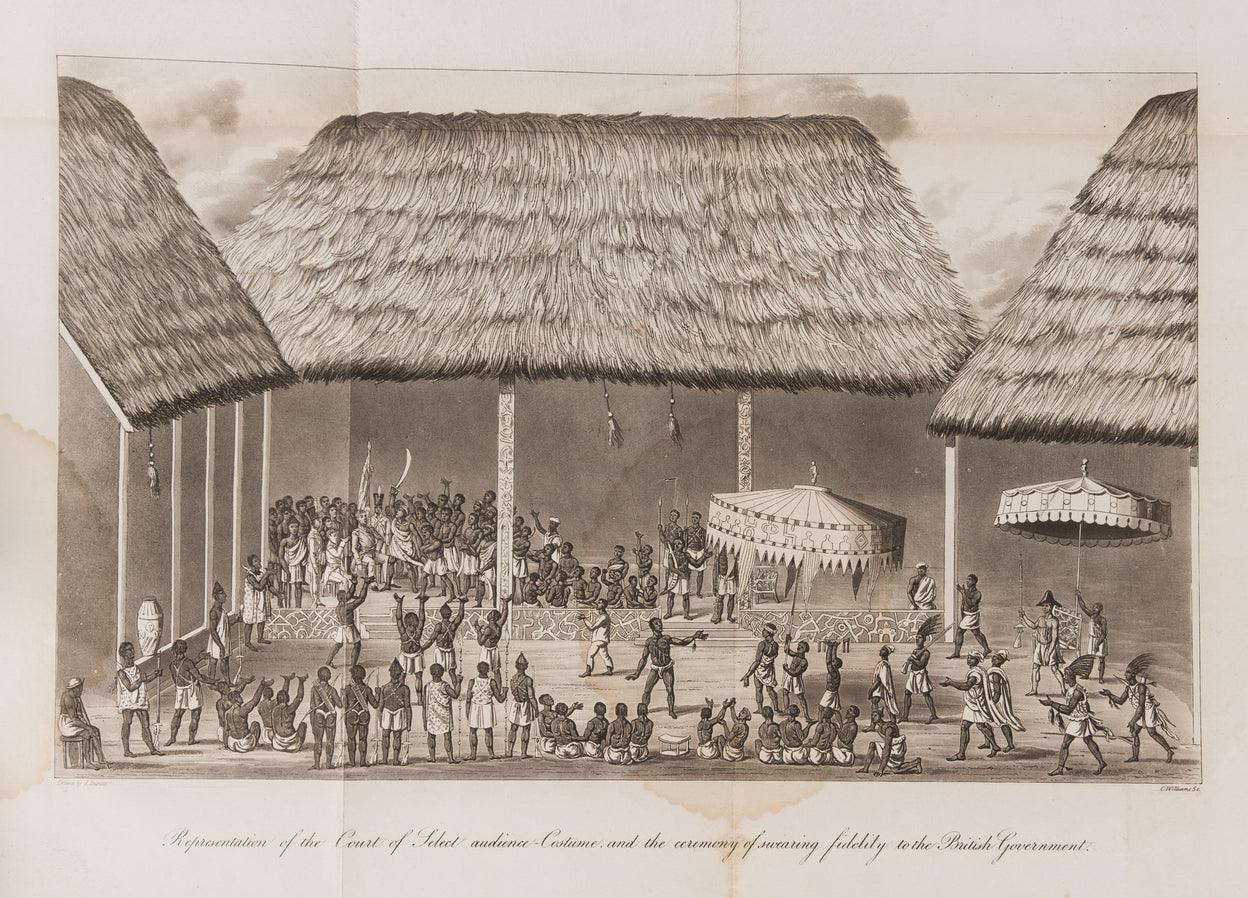 Drawn by J.
C. Williams Sc.
Representation of the Court of Select audience-Costume, and the ceremony of swearing fidelity to the British Government.